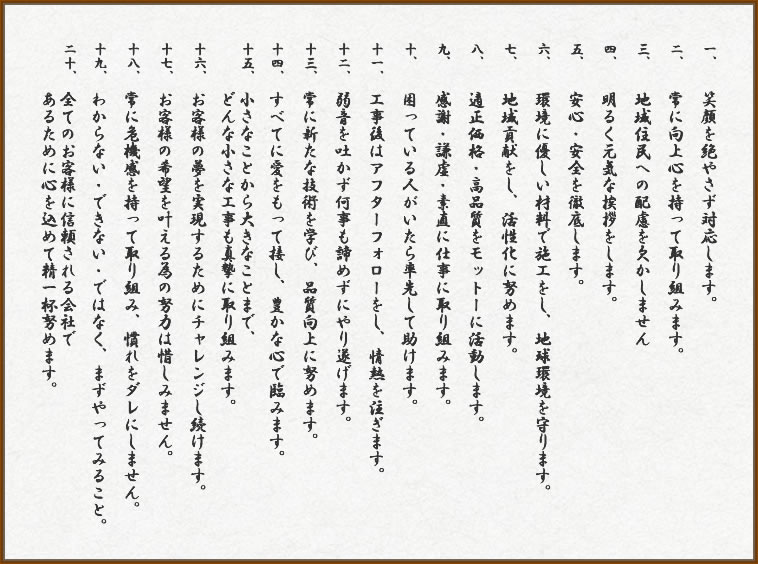 一、笑顔を絶やさず対応します。
二、常に向上心を持って取り組みます。
三、地域住民への配慮を欠かしません
四、明るく元気な挨拶をします。
五、安心・安全を徹底します。
六、環境に優しい材料で施工をし、地球環境を守ります。
七、地域貢献をし、活性化に努めます。
八、適正価格・高品質をモットーに活動します。
九、感謝・謙虚・素直に仕事に取り組みます。
十、困っている人がいたら率先して助けます。
十一、工事後はアフターフォローをし、情熱を注ぎます。
十二、弱音を吐かず何事も諦めずにやり遂げます。
十三、常に新たな技術を学び、品質向上に努めます。
十四、すべてに愛をもって接し、豊かな心で臨みます。
十五、小さなことから大きなことまで、
どんな小さな工事も真摯に取り組みます。
十六、お客様の夢を実現するためにチャレンジし続けます。
十七、お客様の希望を叶える為の努力は惜しみません。
十八、常に危機感を持って取り組み、慣れをダレにしません。
十九、わからない・できない・ではなく、まずやってみること。
二十、全てのお客様に信頼される会社で
あるために心を込めて精一杯努めます。